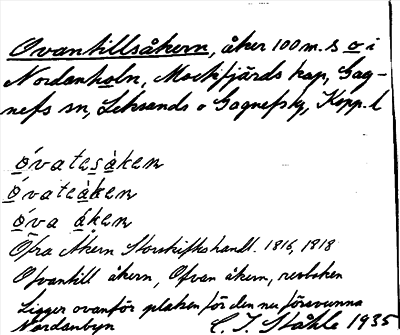 Ovantillsåkern, åker 100 m. S o i
Nordanholn, Mockfjärds kap, Gag-
nefs sn, Leksands o Gagnefs tg, Kopp. l
óvatesàken
óvateàken
óva åken
Öfra Åkern Storskifteshandl. 1816, 1818
Ofvantill åkern, Ofvan åkern,
Ligger ovanför platsen för den nu försvunna
Nordanbyn
1935